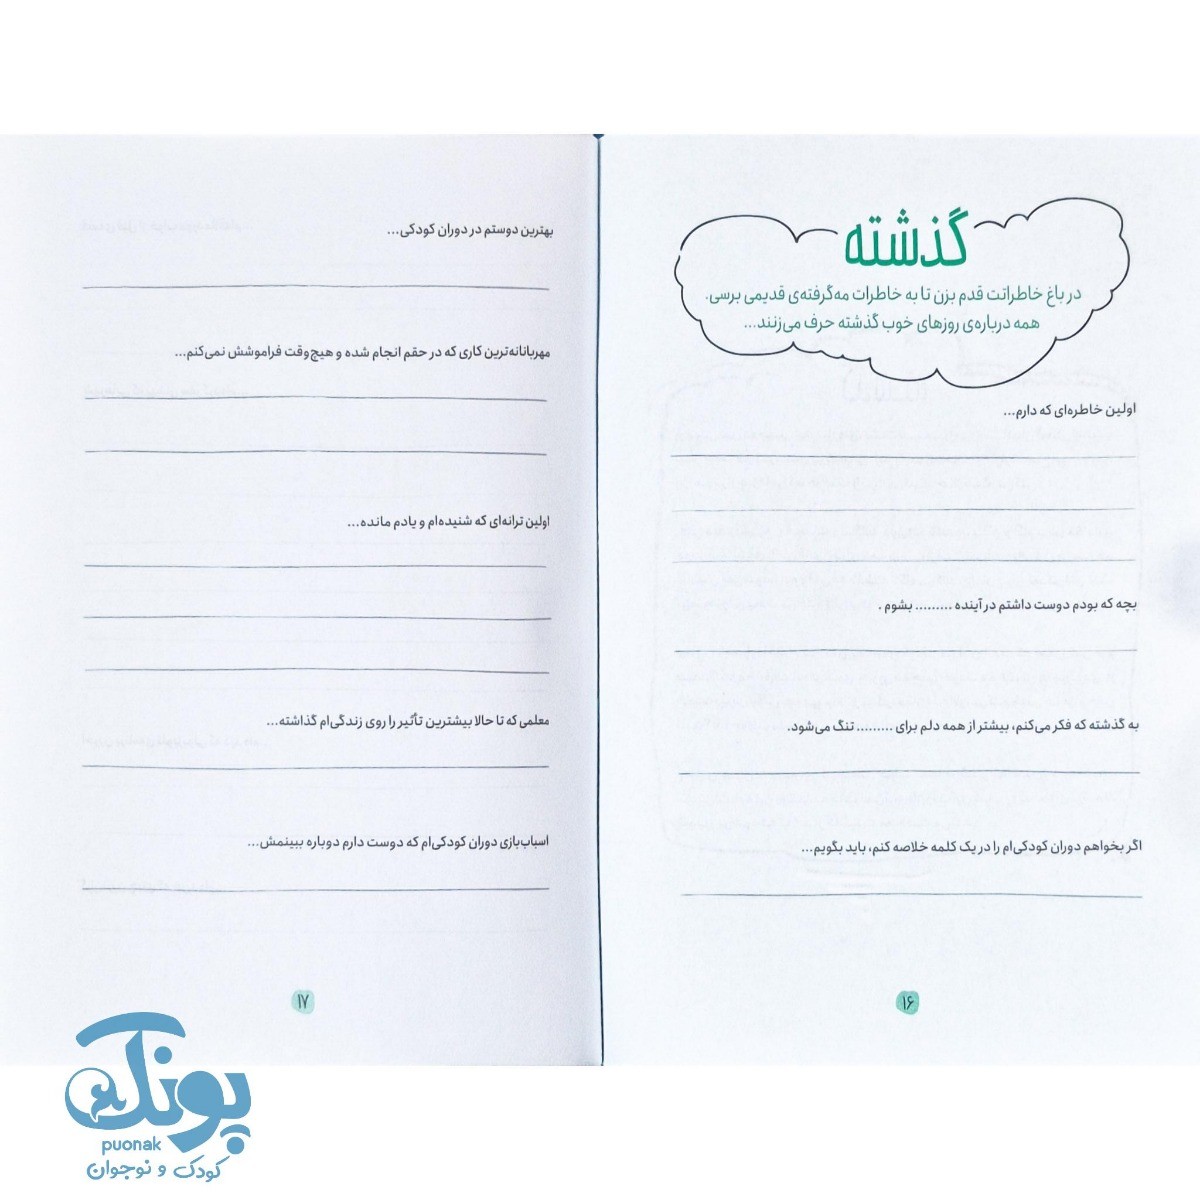 گذشته
در باغ خاطراتت قدم بزن تا به خاطرات مه‌گرفته‌ی قدیمی برسی.
همه درباره‌ی روزهای خوب گذشته حرف می‌زنند...
اولین خاطره‌ای که دارم...
بچه که بودم دوست داشتم در آینده ......... بشوم .
به گذشته که فکر می‌کنم، بیشتر از همه دلم برای ......... تنگ می‌شود.
اگر بخواهم دوران کودکی‌ام را در یک کلمه خلاصه کنم، باید بگویم...
۱۶
بهترین دوستم در دوران کودکی...
مهربانانه‌ترین کاری که در حقم انجام شده و هیچ‌وقت فراموشش نمی‌کنم...
اولین ترانه‌ای که شنیده‌ام و یادم مانده...
معلمی که تا حالا بیشترین تأثیر را روی زندگی‌ام گذاشته...
اسباب‌بازی دوران کودکی‌ام که دوست دارم دوباره ببینمش...
۱۷
پونک
puonak
کودک و نوجوان